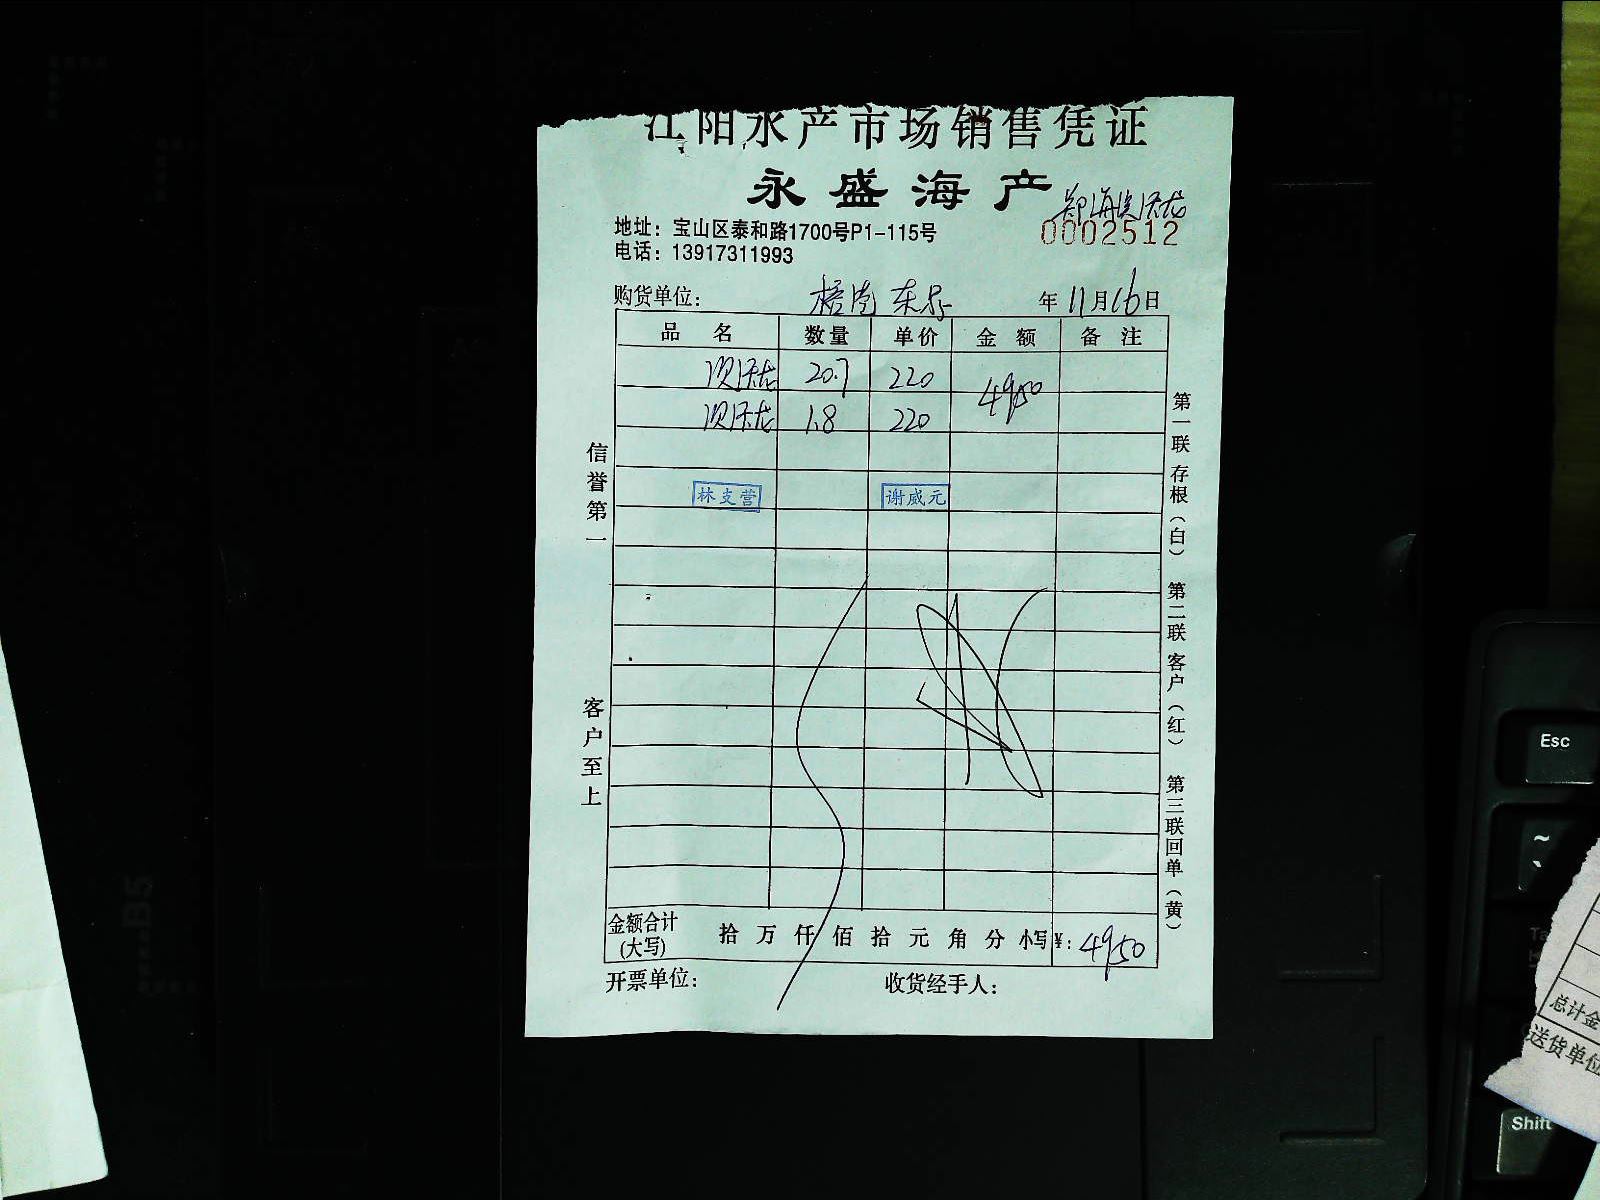 江阳水产市场销售凭证
永盛海产
地址：宝山区泰和路1700号P1-115号
0002512
电话：13917311993
购货单位：
年11月16日
品名 数量 单价 金额 备注
20.7 220 4950
1.8 220
林支营 谢威元
信誉第一
客户至上
第一联 存根（白）
第二联 客户（红）
第三联 回单（黄）
金额合计(大写) 拾 万 仟 佰 拾 元 角 分 小写 ¥：4950
开票单位： 收货经手人：
Esc
~
`
Shift
B5
总计金
送货单位